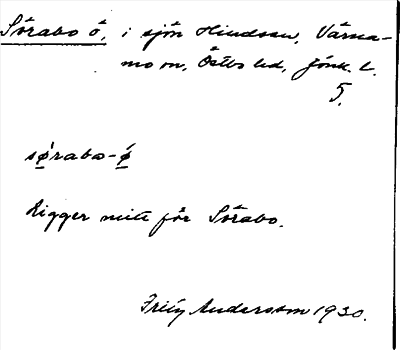 Sörabo ö, i sjön Hindsen, Värna-
mo sn, Östbo hd, Jönk. l.
5.
sørabo-ø
Ligger mitt för Sörabo.
Andersson 1930.